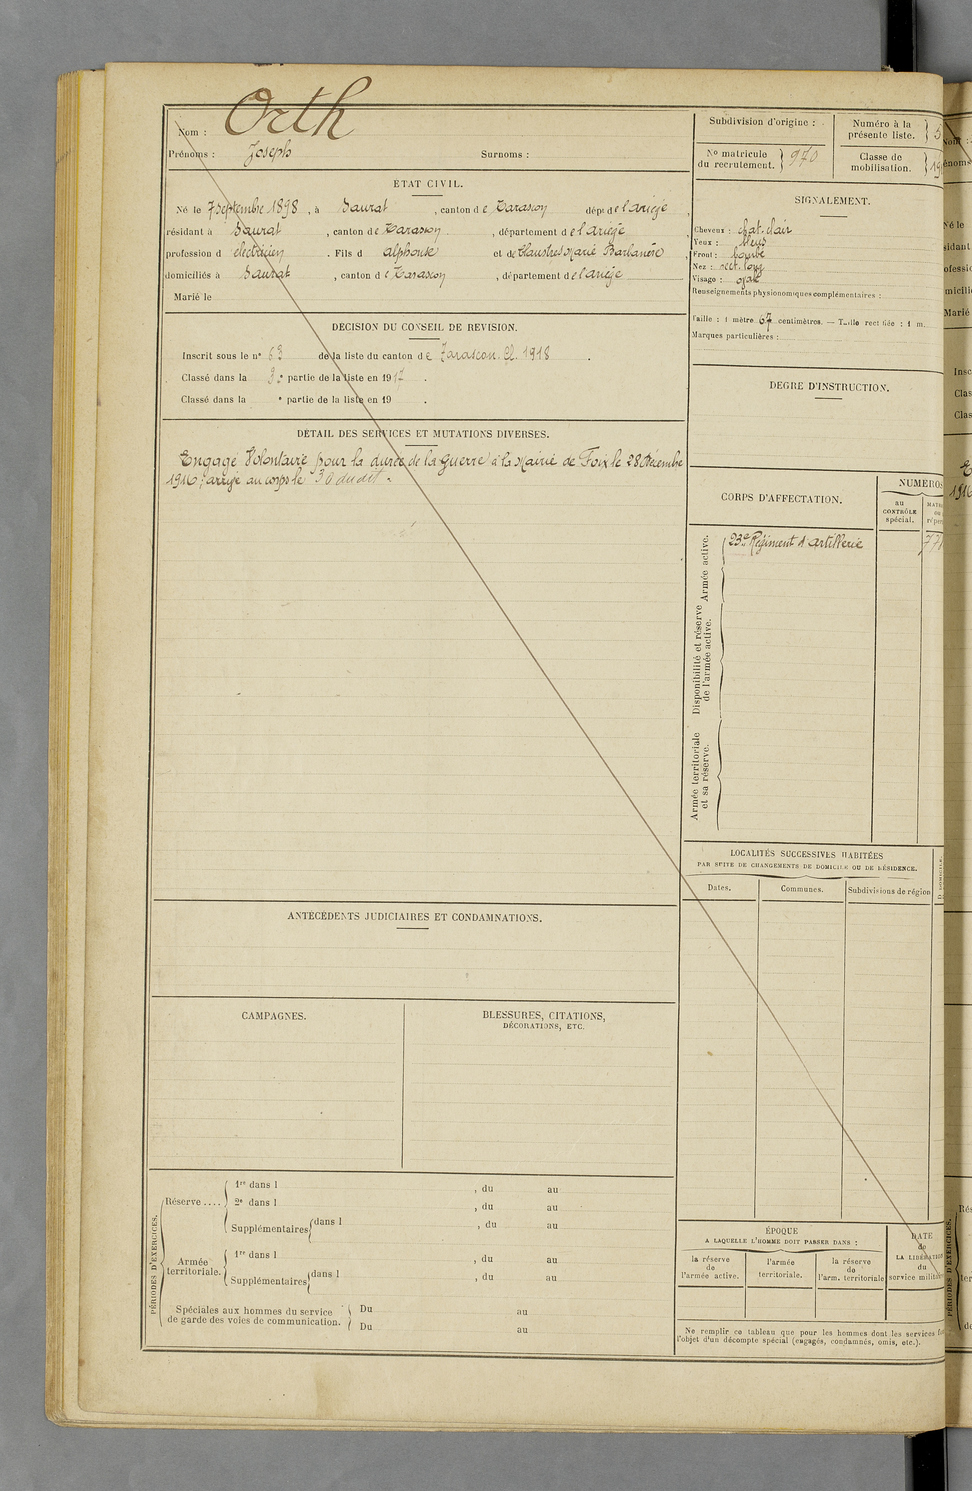 Nom : Orth
Prénoms : Joseph Surnoms :
ETAT CIVIL.
Né le 7 septembre 1898, à Saurat, canton de Tarascon dépt de l'ariège,
résidant à Saurat, canton de Tarascon, département de l'ariège
profession d electricien. Fils d alphonse et de Claustres Marie
domiciliés à Saurat, canton de Tarascon, département de l'ariège
Marié le
DECISION DU CONSEIL DE REVISION.
Inscrit sous le n° 63 de la liste du canton de Tarascon. Cl. 1918.
Classé dans la 3e partie de la liste en 1917.
Classé dans la e partie de la liste en 19 .
DÉTAIL DES SERVICES ET MUTATIONS DIVERSES.
Engagé Volontaire pour la durée de la Guerre à la Mairie de Foix le 28 Décembre
1916, arrivé au corps le 30 dudit.
ANTÉCÉDENTS JUDICIAIRES ET CONDAMNATIONS.
CAMPAGNES.
BLESSURES, CITATIONS,
DÉCORATIONS, ETC.
PÉRIODES D'EXERCICES.
Réserve .... 1re dans l , du au
2e dans l , du au
Supplémentaires dans l , du au
Armée territoriale. 1re dans l , du au
Supplémentaires dans l , du au
Spéciales aux hommes du service Du au
de garde des voies de communication. Du au
Subdivision d'origine :
Numéro à la
présente liste.
N° matricule
du recrutement. 970
Classe de
mobilisation. 19
SIGNALEMENT.
Cheveux : chat. clair
Yeux : bleus
Front : bombé
Nez : rect. long
Visage : ovale
Renseignements physionomiques complémentaires :
Taille : 1 mètre 67 centimètres. — Taille rectifiée : 1 m.
Marques particulières :
DEGRE D'INSTRUCTION.
CORPS D'AFFECTATION.
NUMÉROS
au
CONTRÔLE
spécial.
Armée active.
23e Régiment d'artillerie
Disponibilité et réserve
de l'armée active.
Armée territoriale
et sa réserve.
LOCALITÉS SUCCESSIVES HABITÉES
PAR SUITE DE CHANGEMENTS DE DOMICILE OU DE RÉSIDENCE.
Dates. Communes. Subdivisions de région
ÉPOQUE
A LAQUELLE L'HOMME DOIT PASSER DANS :
la réserve
de
l'armée active.
l'armée
territoriale.
la réserve
de
l'arm. territoriale
DATE
de
LA LIBÉRATION
du
service milit
Ne remplir ce tableau que pour les hommes dont les services
l'objet d'un décompte spécial (engagés, condamnés, omis, etc.).